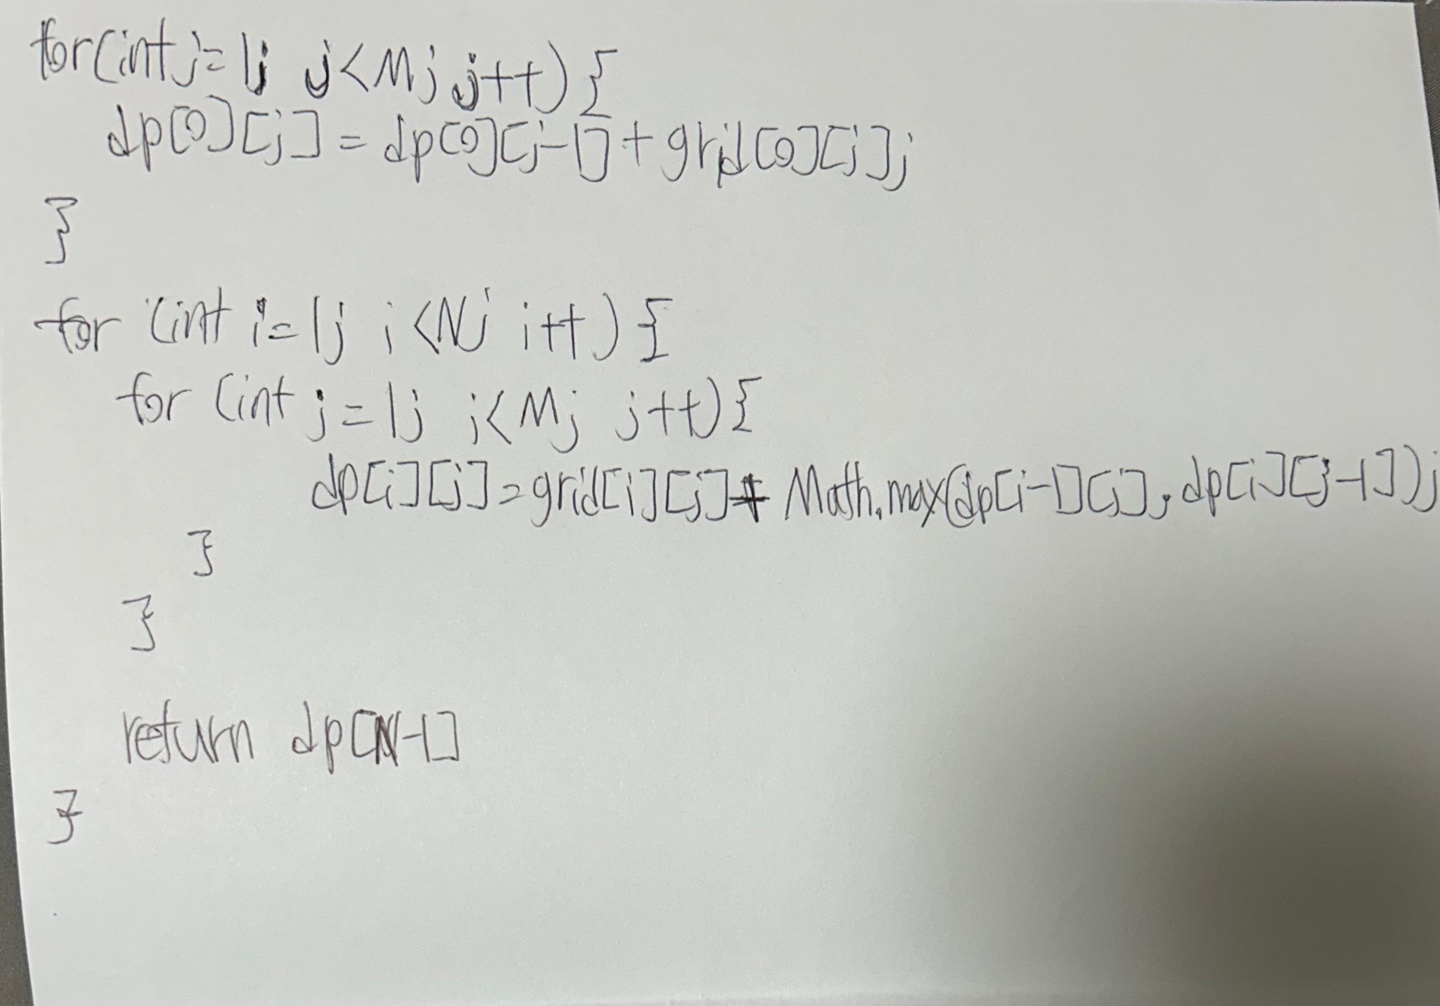 for(int j=1; j<M; j++){
dp[0][j]=dp[0][j-1]+grid[0][j];
}
for (int i=1; i<N; i++){
for (int j=1; j<M; j++){
dp[i][j]=grid[i][j]+ Math.max(dp[i-1][j], dp[i][j-1]);
}
}
return dp[N-1]
}